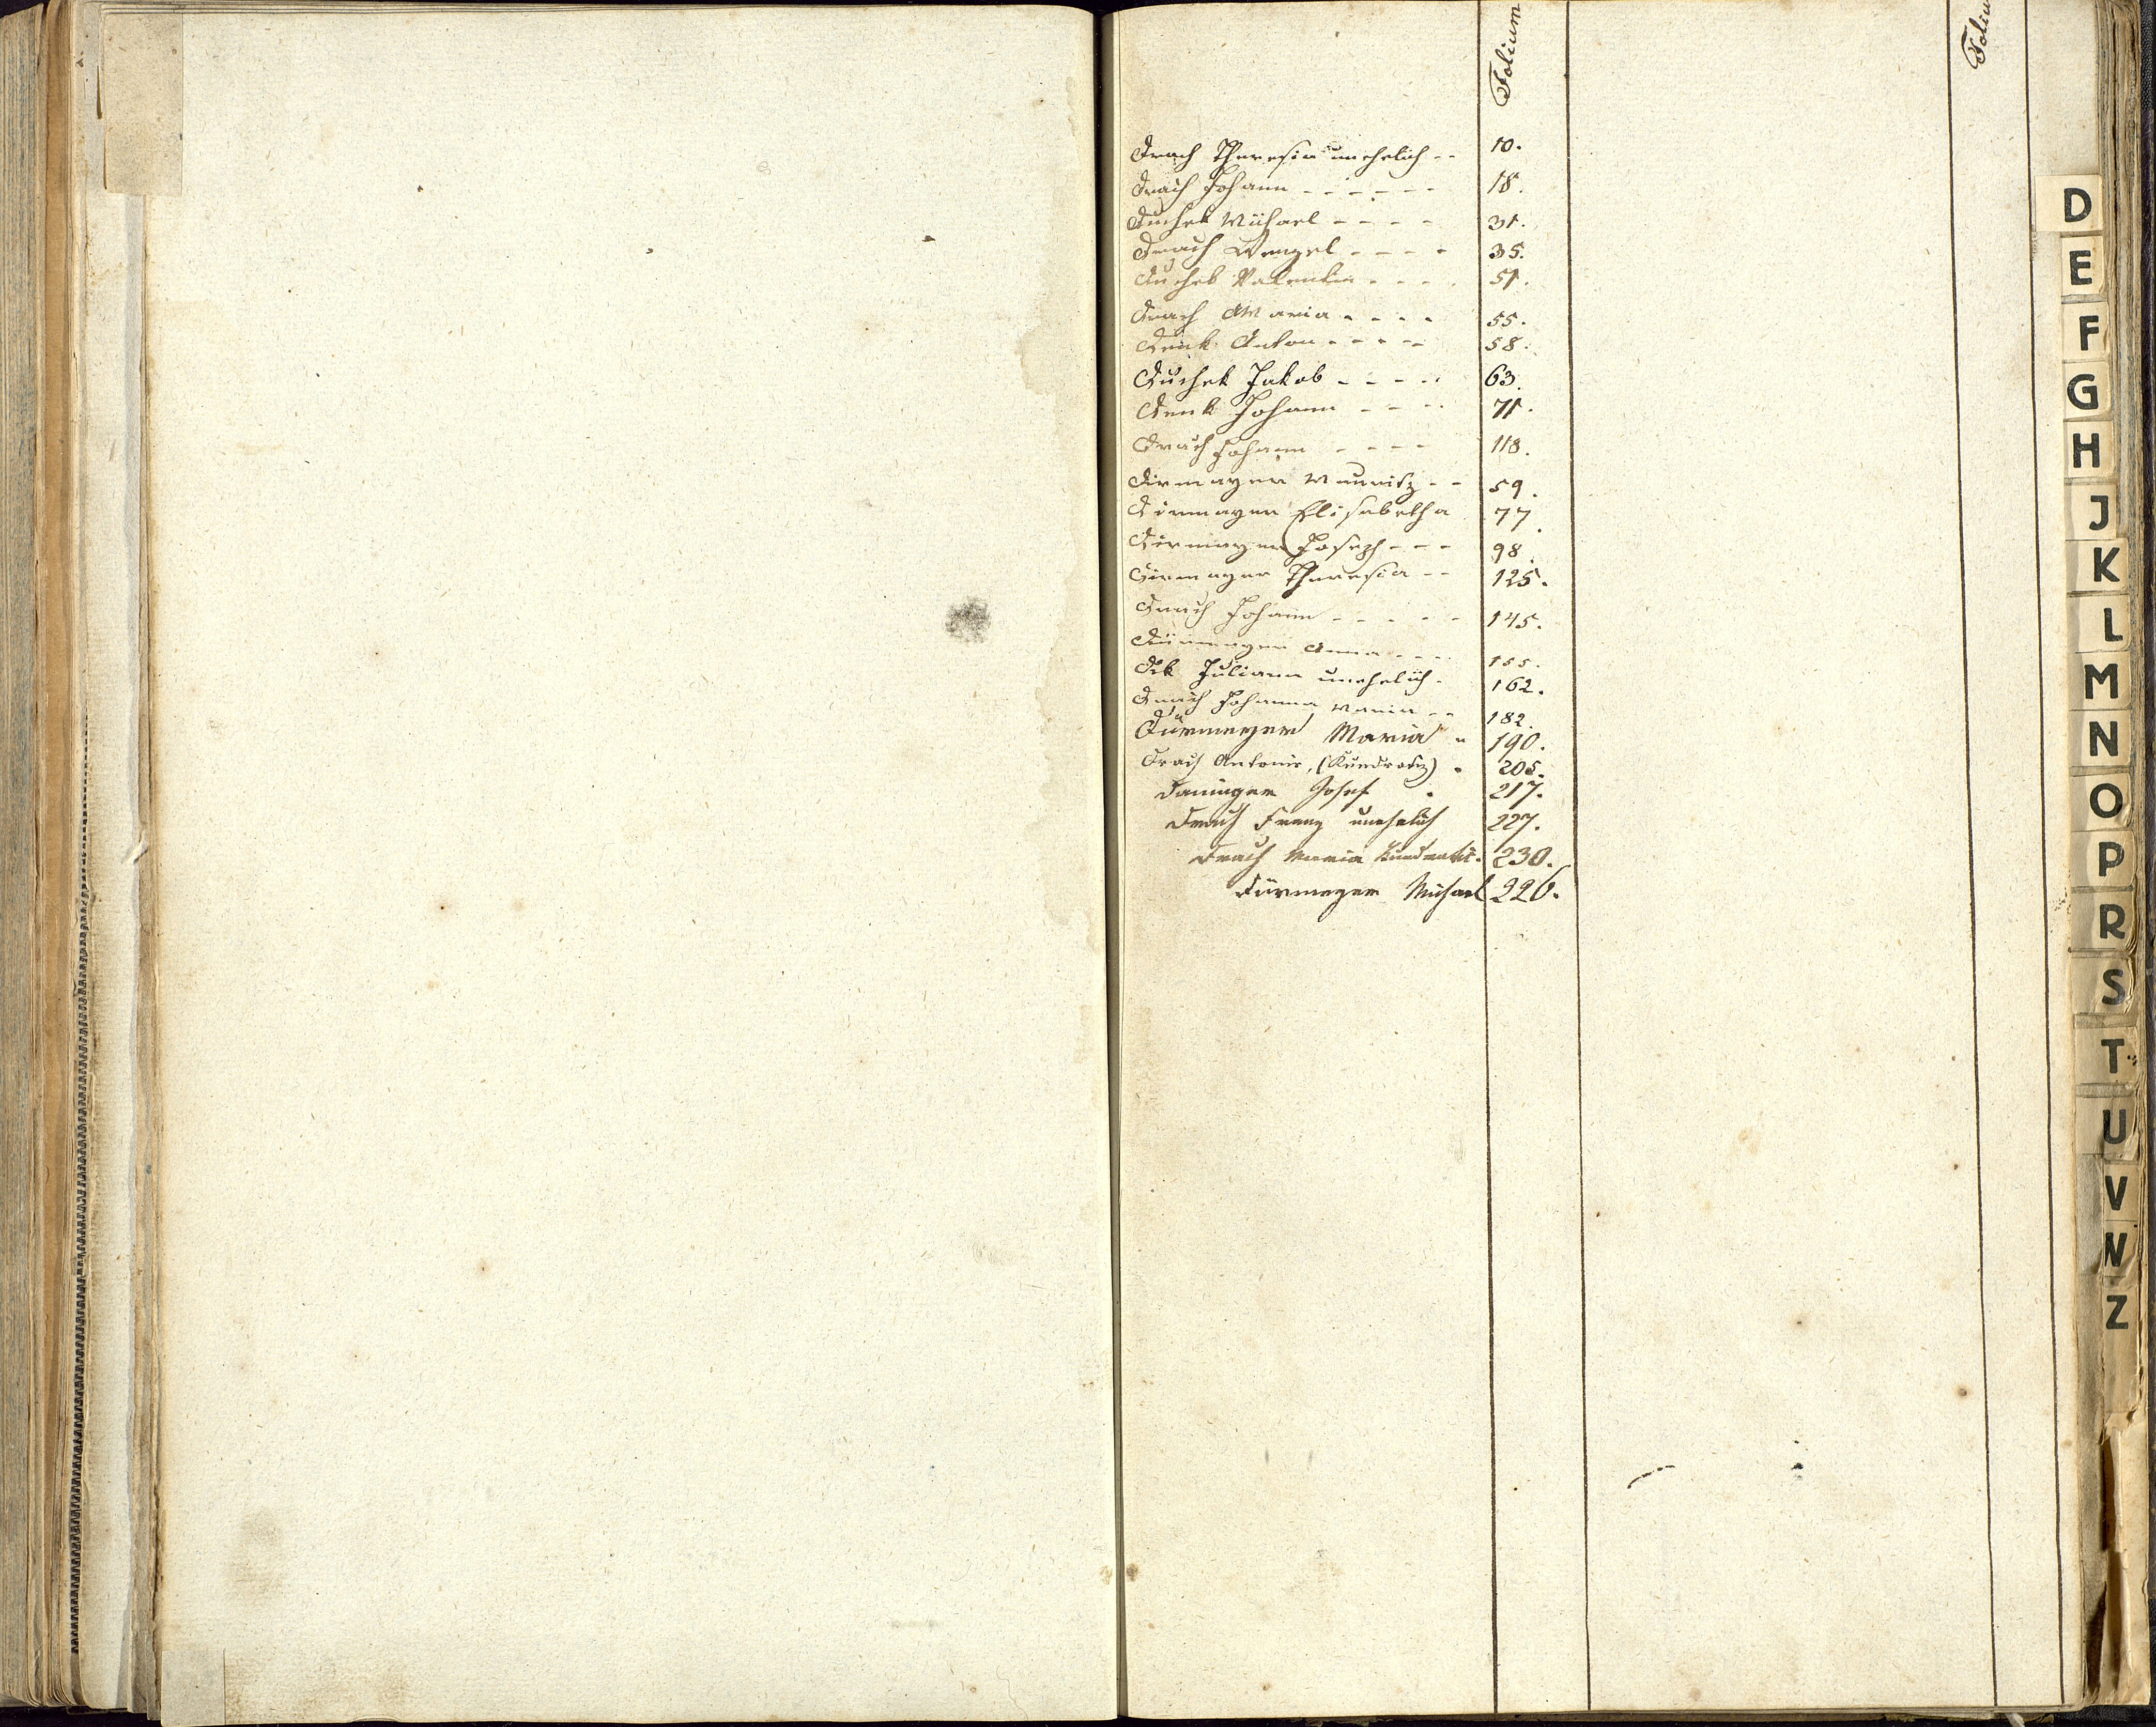 Folium
Folium
Drach Theresia unehelich -- 10.
Drach Johann - - - - - 18.
Duchek Michael - - - - 31.
Drach Wenzel - - - - 35.
Duchek Valentin - - - - 51.
Drach Maria - - - - 55.
Denk Anton - - - - 58.
Duchek Jakob - - - - 63.
Denk Johann - - - - 71.
Drach Johann - - - - 118.
Dirmayer Mauritz - - 59.
Dirmayer Elisabetha 77.
Dirmayer Joseph - - - 98.
Dirmayer Theresia - - 125.
Drach Johann - - - - - 145.
Dürmayer Anna - - - - 155.
Dik Juliana unehelich - 162.
Drach Johanna Maria - - 182.
Dürmeyer Maria " 190.
Drach Antonie, (Kundratiz) . 205.
Daninger Josef . 217.
Drach Franz unehelich 227.
Drach Maria Kundratiz. 230.
Dürmeyer Michael 226.
D
E
F
G
H
J
K
L
M
N
O
P
R
S
T
U
V
W
Z